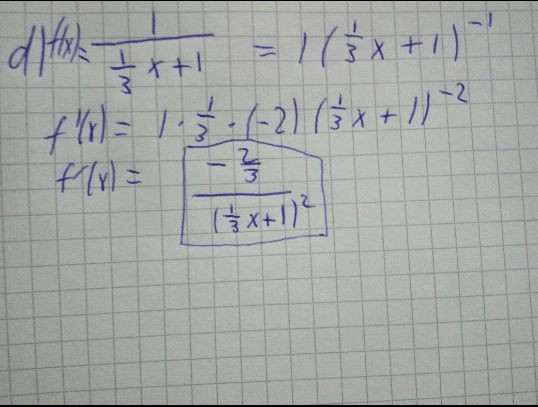 d) f(x) = 1/(1/3 x + 1) = 1 (1/3 x + 1)^-1
f'(x) = 1 · 1/3 · (-2) (1/3 x + 1)^-2
f'(x) = (- 2/3)/((1/3 x + 1)^2)